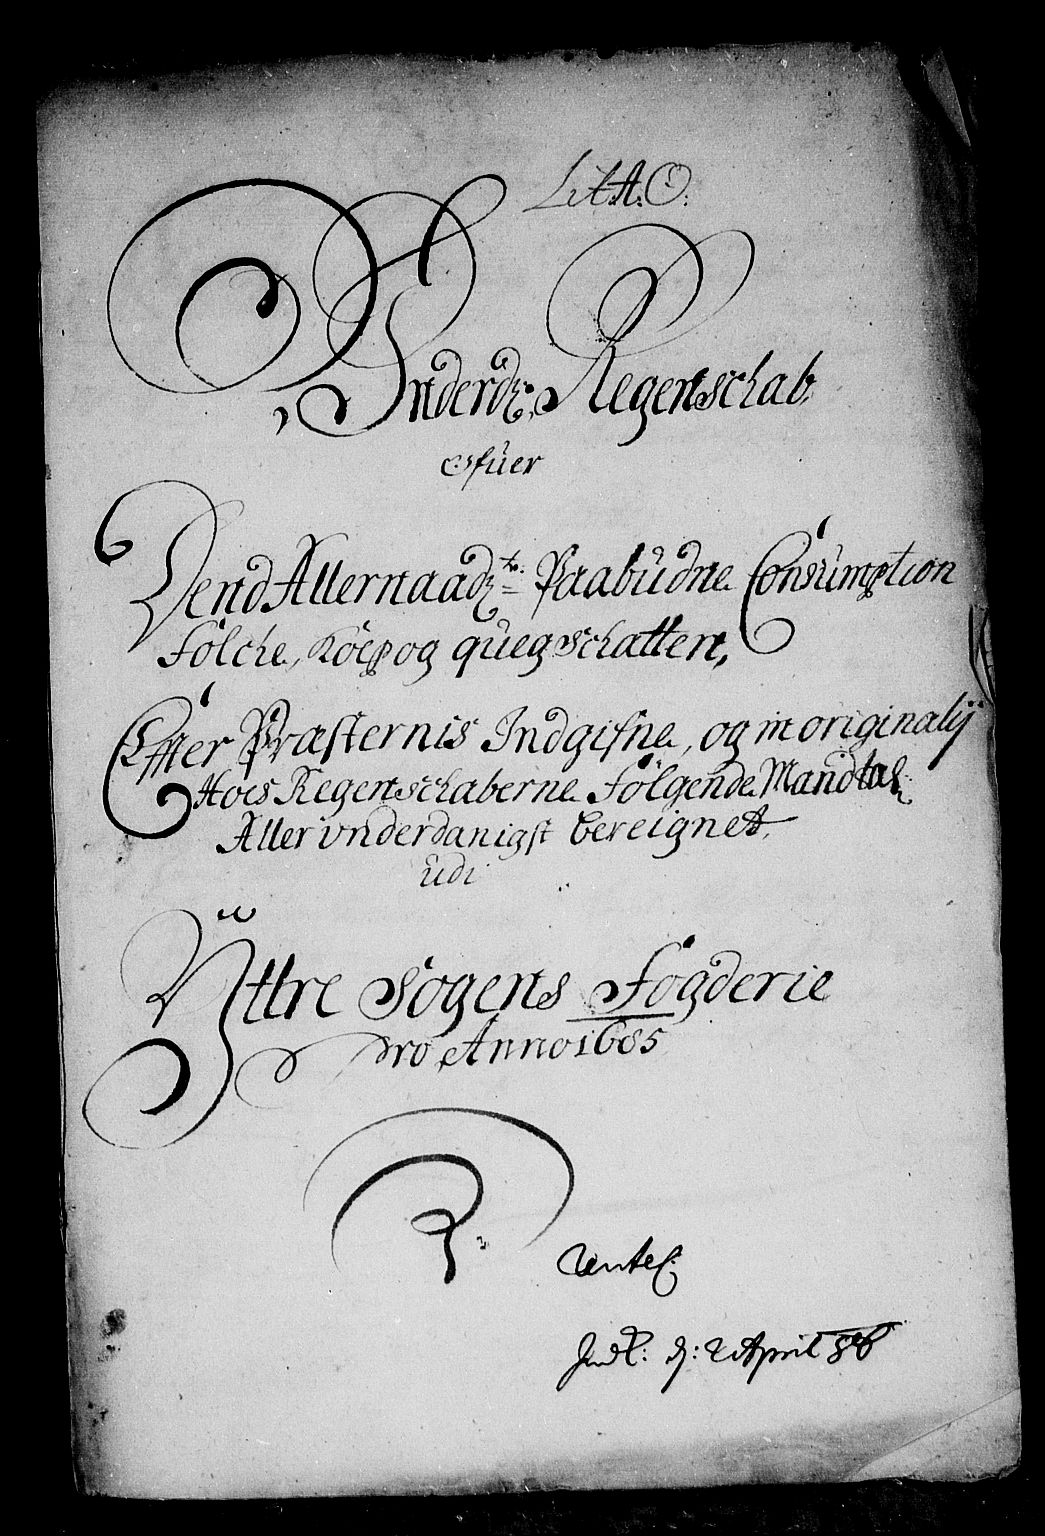 Lit A. O:
Underd: Regenschab
ofuer
Dend Allernaad:te Paabudne Consumption
Folche, Kocp og queg schatten,
Effter Præsternis Indgifne, og in originalij
Hoes Regenschaberne Følgende Mandtal
Aller underdanigst bereignet,
udi
Ÿttre Sogens Fogderie
Pro Anno 1685
Indl: d: 2 April 86